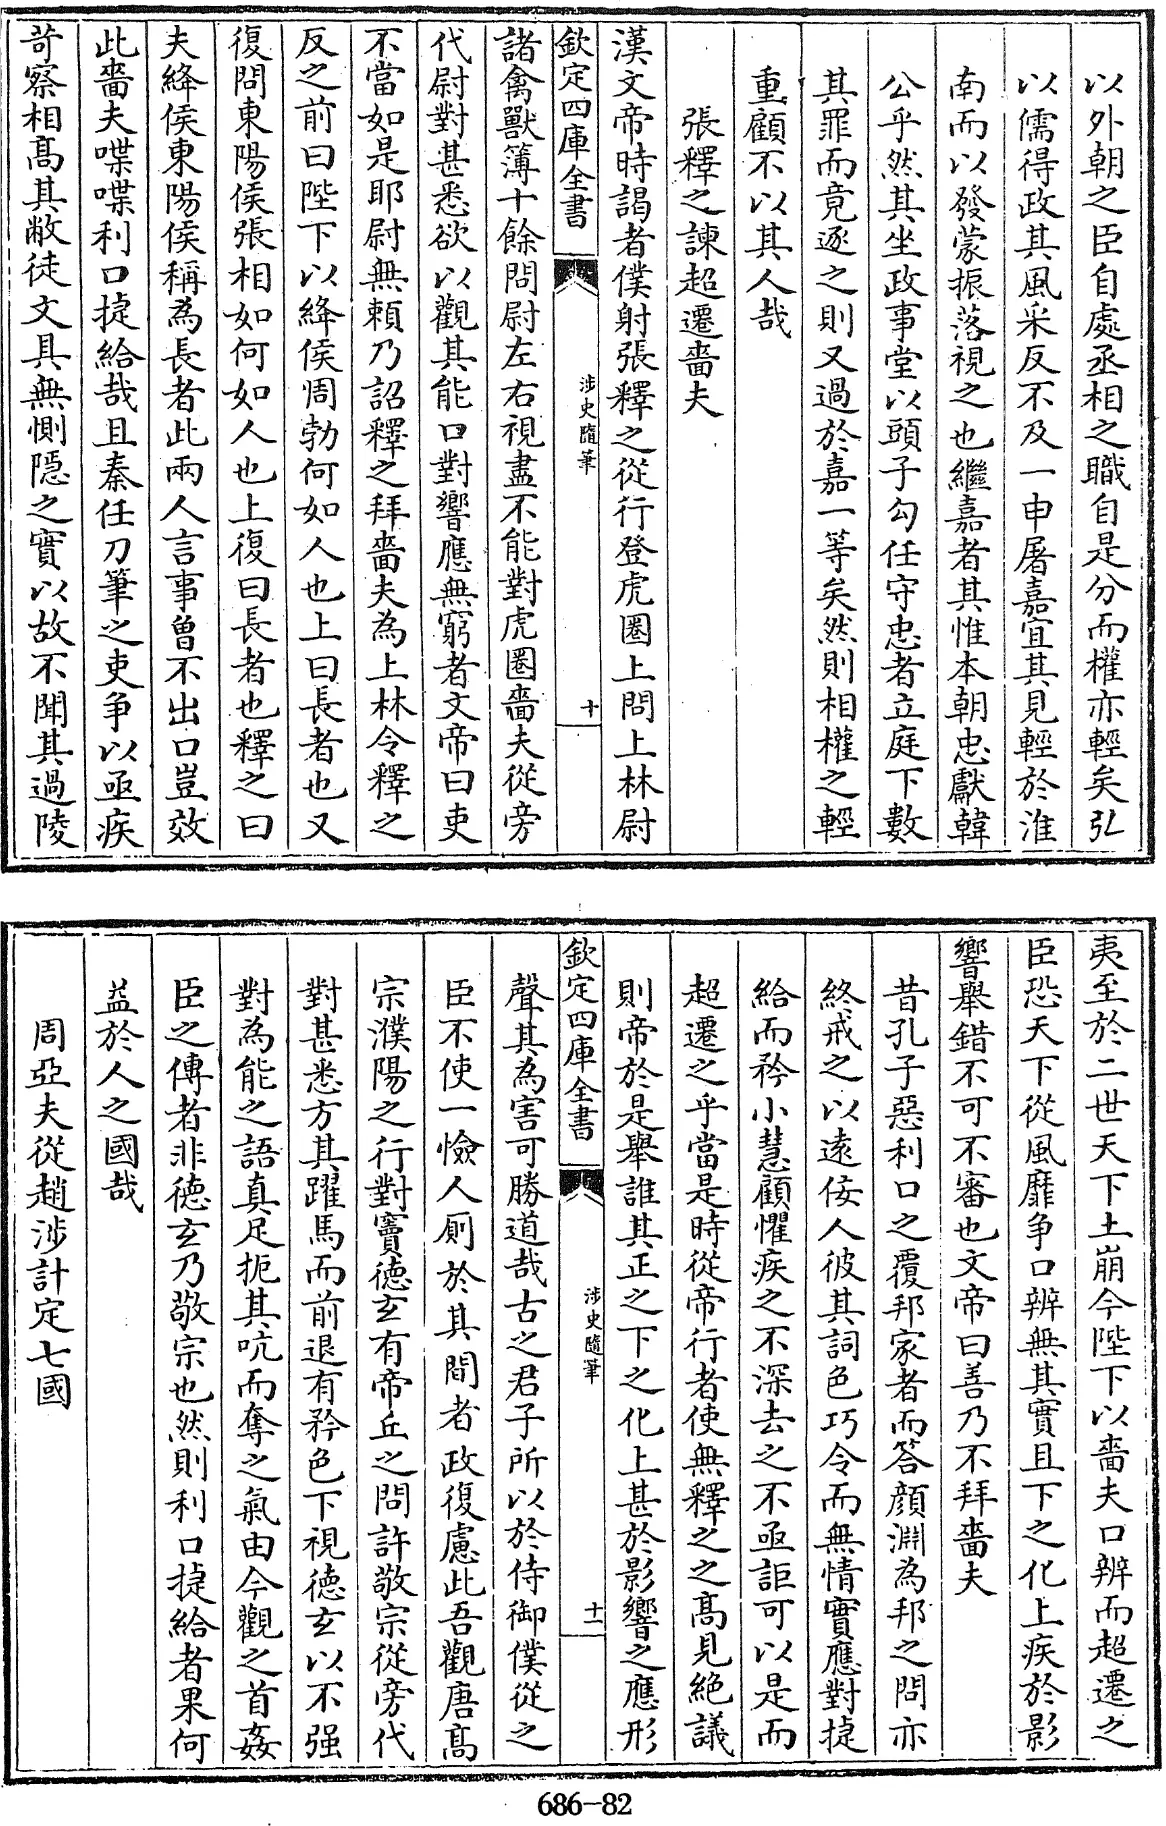 以外朝之臣自處丞相之職自是分而權亦輕矣弘
以儒得政其風采反不及一申屠嘉宜其見輕於淮
南而以發蒙振落視之也繼嘉者其惟本朝忠獻韓
公乎然其坐政事堂以頭子勾任守忠者立庭下數
其罪而竟逐之則又過於嘉一等矣然則相權之輕
重顧不以其人哉
張釋之諫超遷嗇夫
漢文帝時謁者僕射張釋之從行登虎圈上問上林尉
欽定四庫全書
涉史隨筆
十
諸禽獸簿十餘問尉左右視盡不能對虎圈嗇夫從旁
代尉對甚悉欲以觀其能口對響應無窮者文帝曰吏
不當如是耶尉無賴乃詔釋之拜嗇夫為上林令釋之
反之前曰陛下以絳侯周勃何如人也上曰長者也又
復問東陽侯張相如何如人也上復曰長者也釋之曰
夫絳侯東陽侯稱為長者此兩人言事曾不出口豈效
此嗇夫喋喋利口捷給哉且秦任刀筆之吏爭以亟疾
苛察相高其敝徒文具無惻隱之實以故不聞其過陵
夷至於二世天下土崩今陛下以嗇夫口辨而超遷之
臣恐天下從風靡爭口辨無其實且下之化上疾於影
響舉錯不可不審也文帝曰善乃不拜嗇夫
昔孔子惡利口之覆邦家者而答顏淵為邦之問亦
終戒之以遠佞人彼其詞色巧令而無情實應對捷
給而矜小慧顧懼疾之不深去之不亟詎可以是而
超遷之乎當是時從帝行者使無釋之之高見絶議
則帝於是舉誰其正之下之化上甚於影響之應形
欽定四庫全書
涉史隨筆
十一
聲其為害可勝道哉古之君子所以於侍御僕從之
臣不使一憸人厠於其間者政復慮此吾觀唐高
宗濮陽之行對竇德玄有帝丘之問許敬宗從旁代
對甚悉方其躍馬而前退有矜色下視德玄以不强
對為能之語真足扼其吭而奪之氣由今觀之首姦
臣之傳者非德玄乃敬宗也然則利口捷給者果何
益於人之國哉
周亞夫從趙涉計定七國
686-82